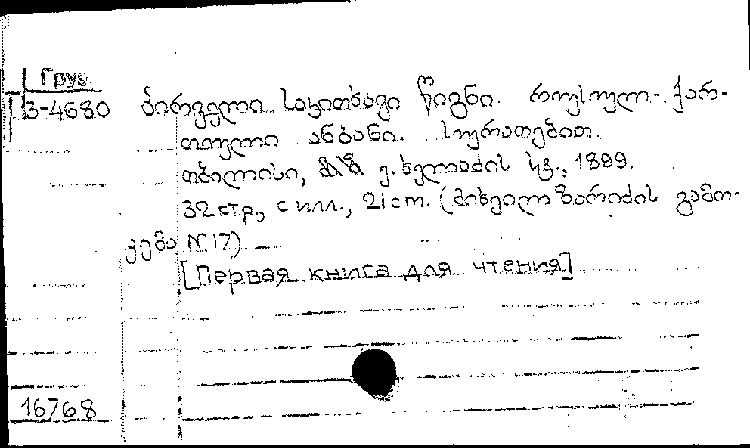 Груз.
3-4680 პირველი საკითხავი წიგნი. რუსულ-ქარ-
თული ანბანი. სურათებით.
თბილისი, ე. ხელაძის სტ., 1899.
32 стр., с илл., 21 cm. (მიხეილ ზარიძის გამო-
ცემა N 17)
[Первая книга для чтения]
16768